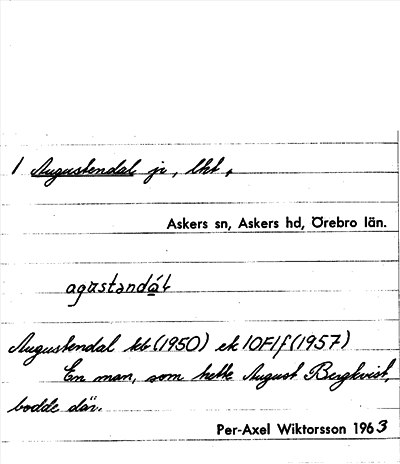 1 Augustendal, ji, lht,
Askers sn, Askers hd, Örebro län.
agustəndál
Augustendal kb (1950) ek 10F1f (1957)
En man, som hette August Bergkvist,
bodde där.
Per-Axel Wiktorsson 1963